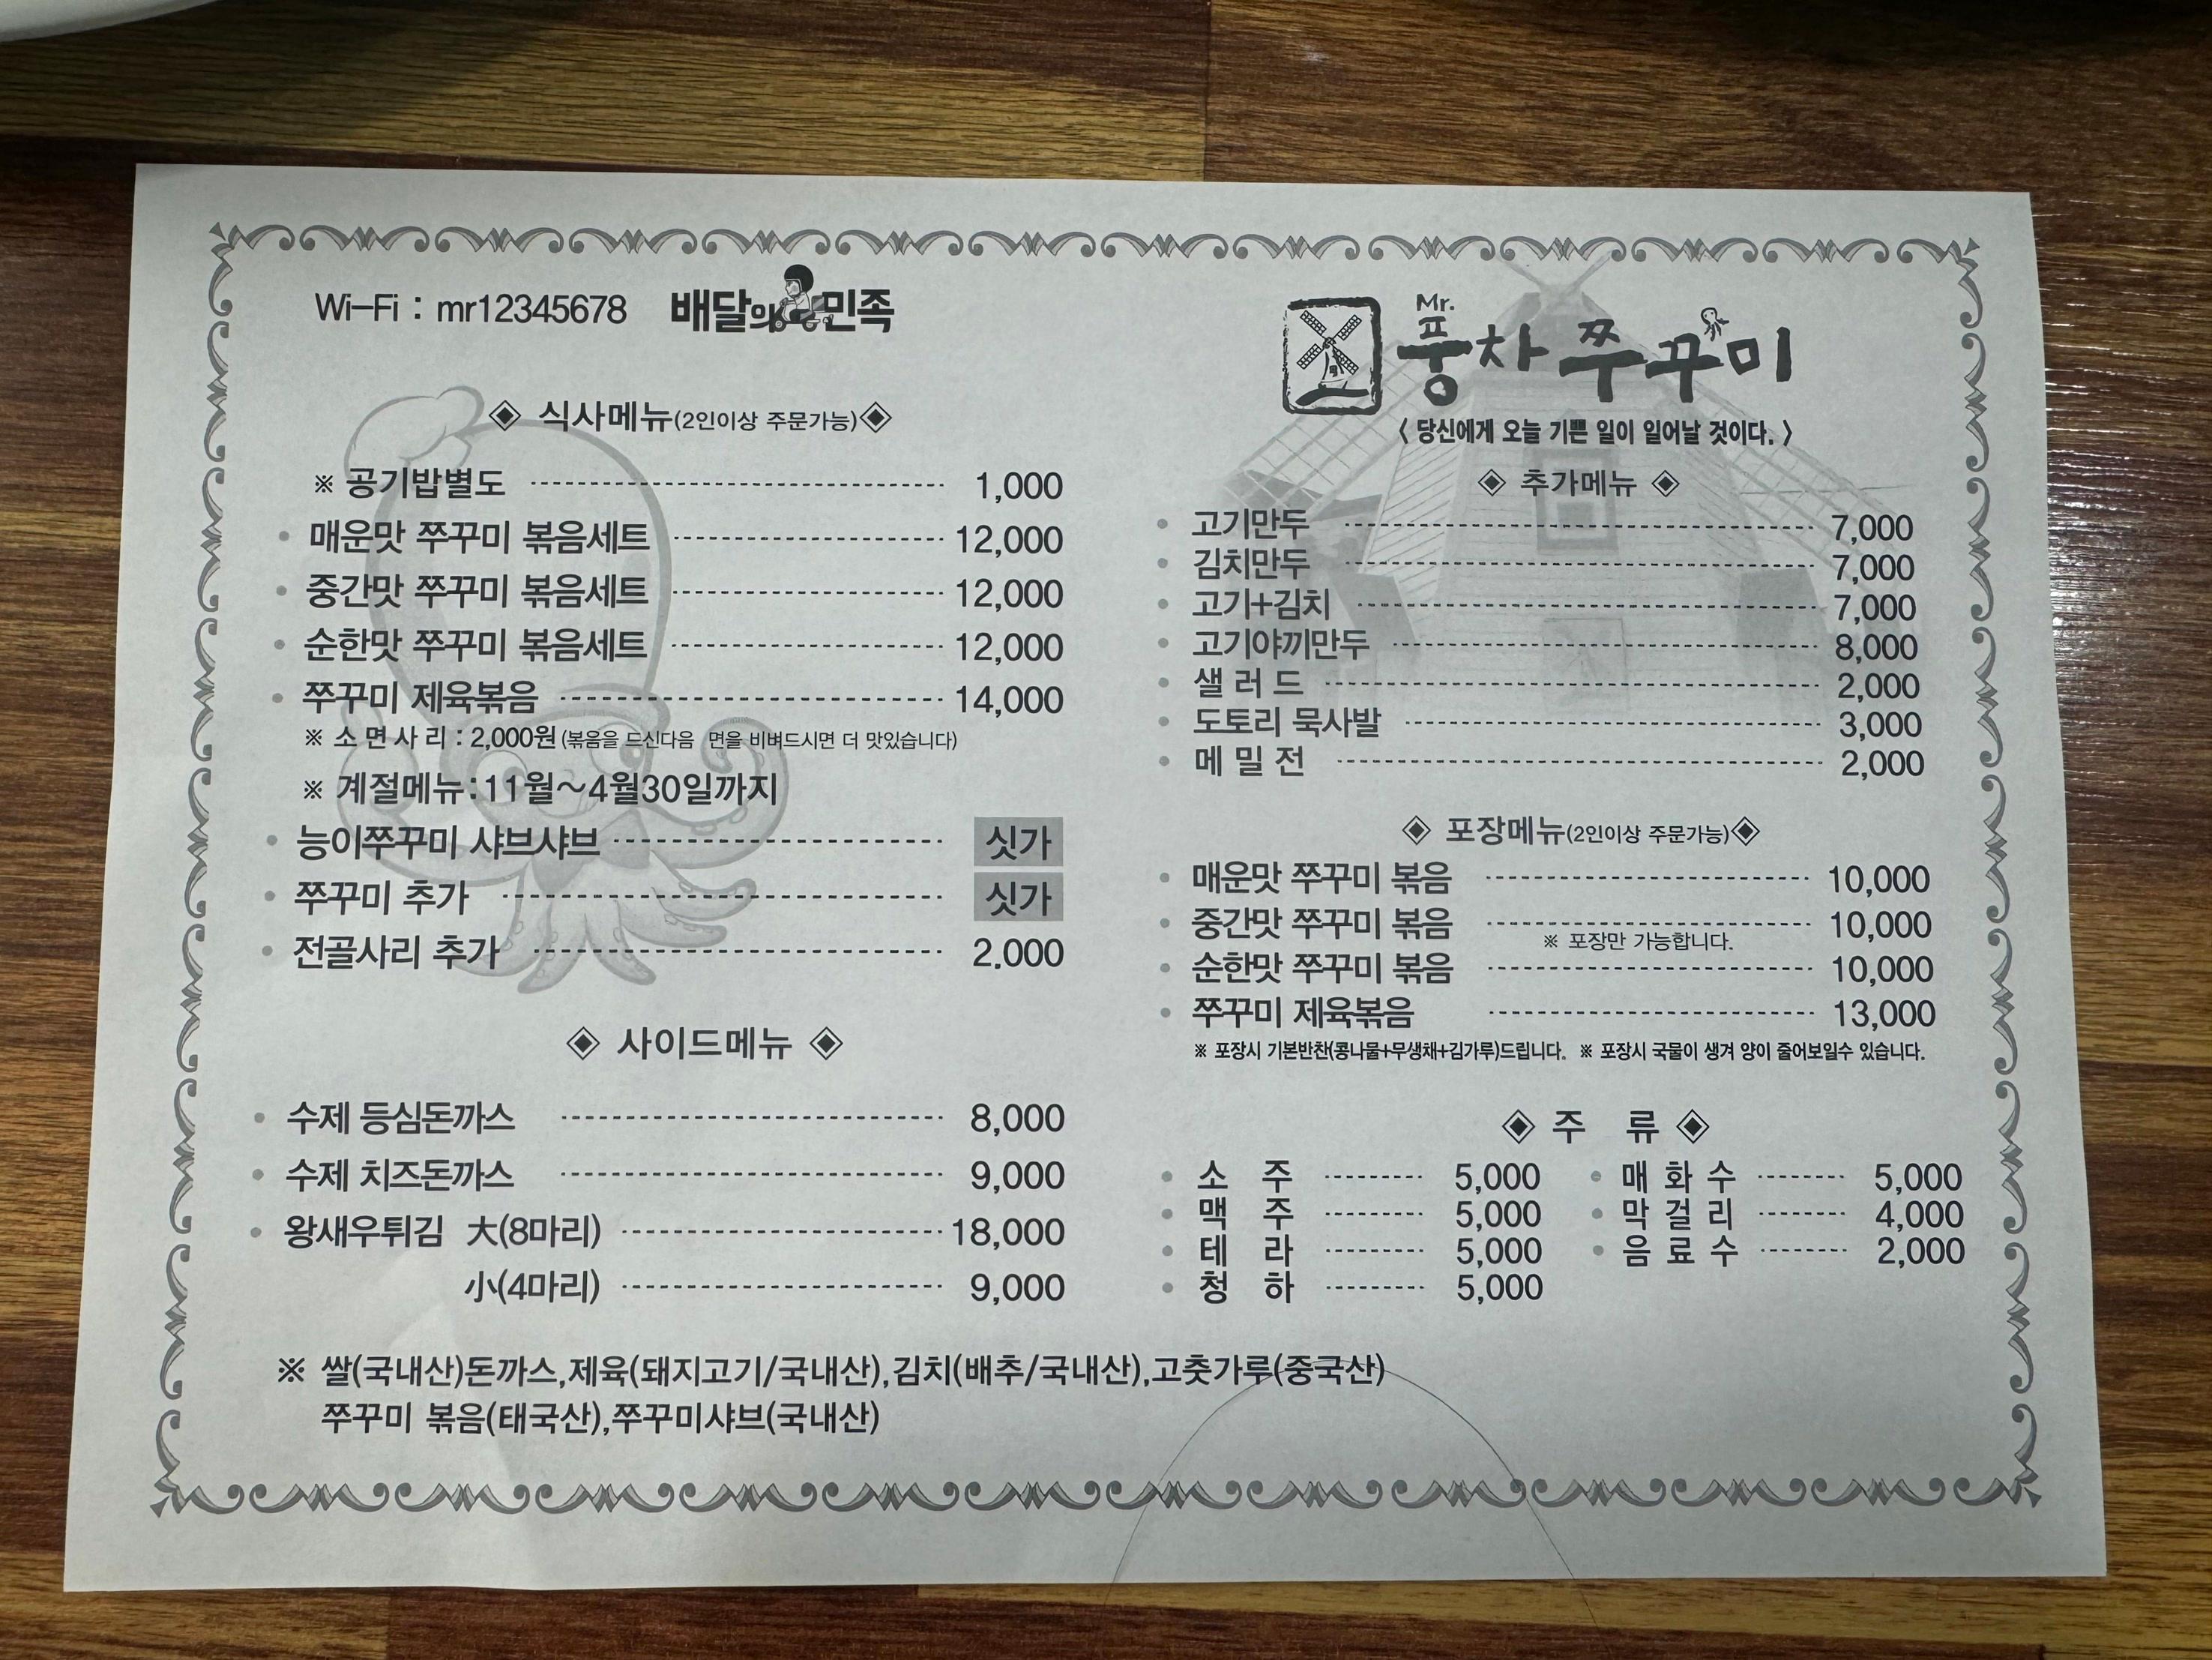 Wi-Fi : mr12345678 배달의민족
◈ 식사메뉴(2인이상 주문가능)◈
※ 공기밥별도 1,000
• 매운맛 쭈꾸미 볶음세트 12,000
• 중간맛 쭈꾸미 볶음세트 12,000
• 순한맛 쭈꾸미 볶음세트 12,000
• 쭈꾸미 제육볶음 14,000
※ 소면사리 : 2,000원(볶음을 드신다음 면을 비벼드시면 더 맛있습니다)
※ 계절메뉴:11월~4월30일까지
• 능이쭈꾸미 샤브샤브 싯가
• 쭈꾸미 추가 싯가
• 전골사리 추가 2.000
◈ 사이드메뉴 ◈
• 수제 등심돈까스 8,000
• 수제 치즈돈까스 9,000
• 왕새우튀김 大(8마리) 18,000
小(4마리) 9,000
Mr.
풍차 쭈꾸미
〈 당신에게 오늘 기쁜 일이 일어날 것이다. 〉
◈ 추가메뉴 ◈
• 고기만두 7,000
• 김치만두 7,000
• 고기+김치 7,000
• 고기야끼만두 8,000
• 샐 러 드 2,000
• 도토리 묵사발 3,000
• 메 밀 전 2,000
◈ 포장메뉴(2인이상 주문가능)◈
• 매운맛 쭈꾸미 볶음 10,000
• 중간맛 쭈꾸미 볶음 10,000
※ 포장만 가능합니다.
• 순한맛 쭈꾸미 볶음 10,000
• 쭈꾸미 제육볶음 13,000
※ 포장시 기본반찬(콩나물+무생채+김가루)드립니다. ※ 포장시 국물이 생겨 양이 줄어보일수 있습니다.
◈ 주 류 ◈
• 소 주 5,000 • 매 화 수 5,000
• 맥 주 5,000 • 막 걸 리 4,000
• 테 라 5,000 • 음 료 수 2,000
• 청 하 5,000
※ 쌀(국내산)돈까스,제육(돼지고기/국내산),김치(배추/국내산),고춧가루(중국산)
쭈꾸미 볶음(태국산),쭈꾸미샤브(국내산)